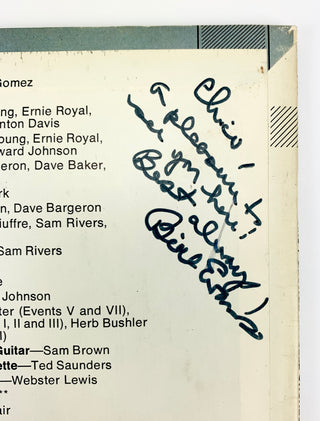 Gomez
ng, Ernie Royal,
nton Davis
oung, Ernie Royal,
ward Johnson
eron, Dave Baker,
rk
n, Dave Bargeron
iuffre, Sam Rivers,
Sam Rivers
e
Johnson
ter (Events V and VII),
I, II and III), Herb Bushler
I)
Guitar—Sam Brown
ette—Ted Saunders
—Webster Lewis
**
air
Chico!
A pleasure to
see you here!
Best always!
Bill Evans